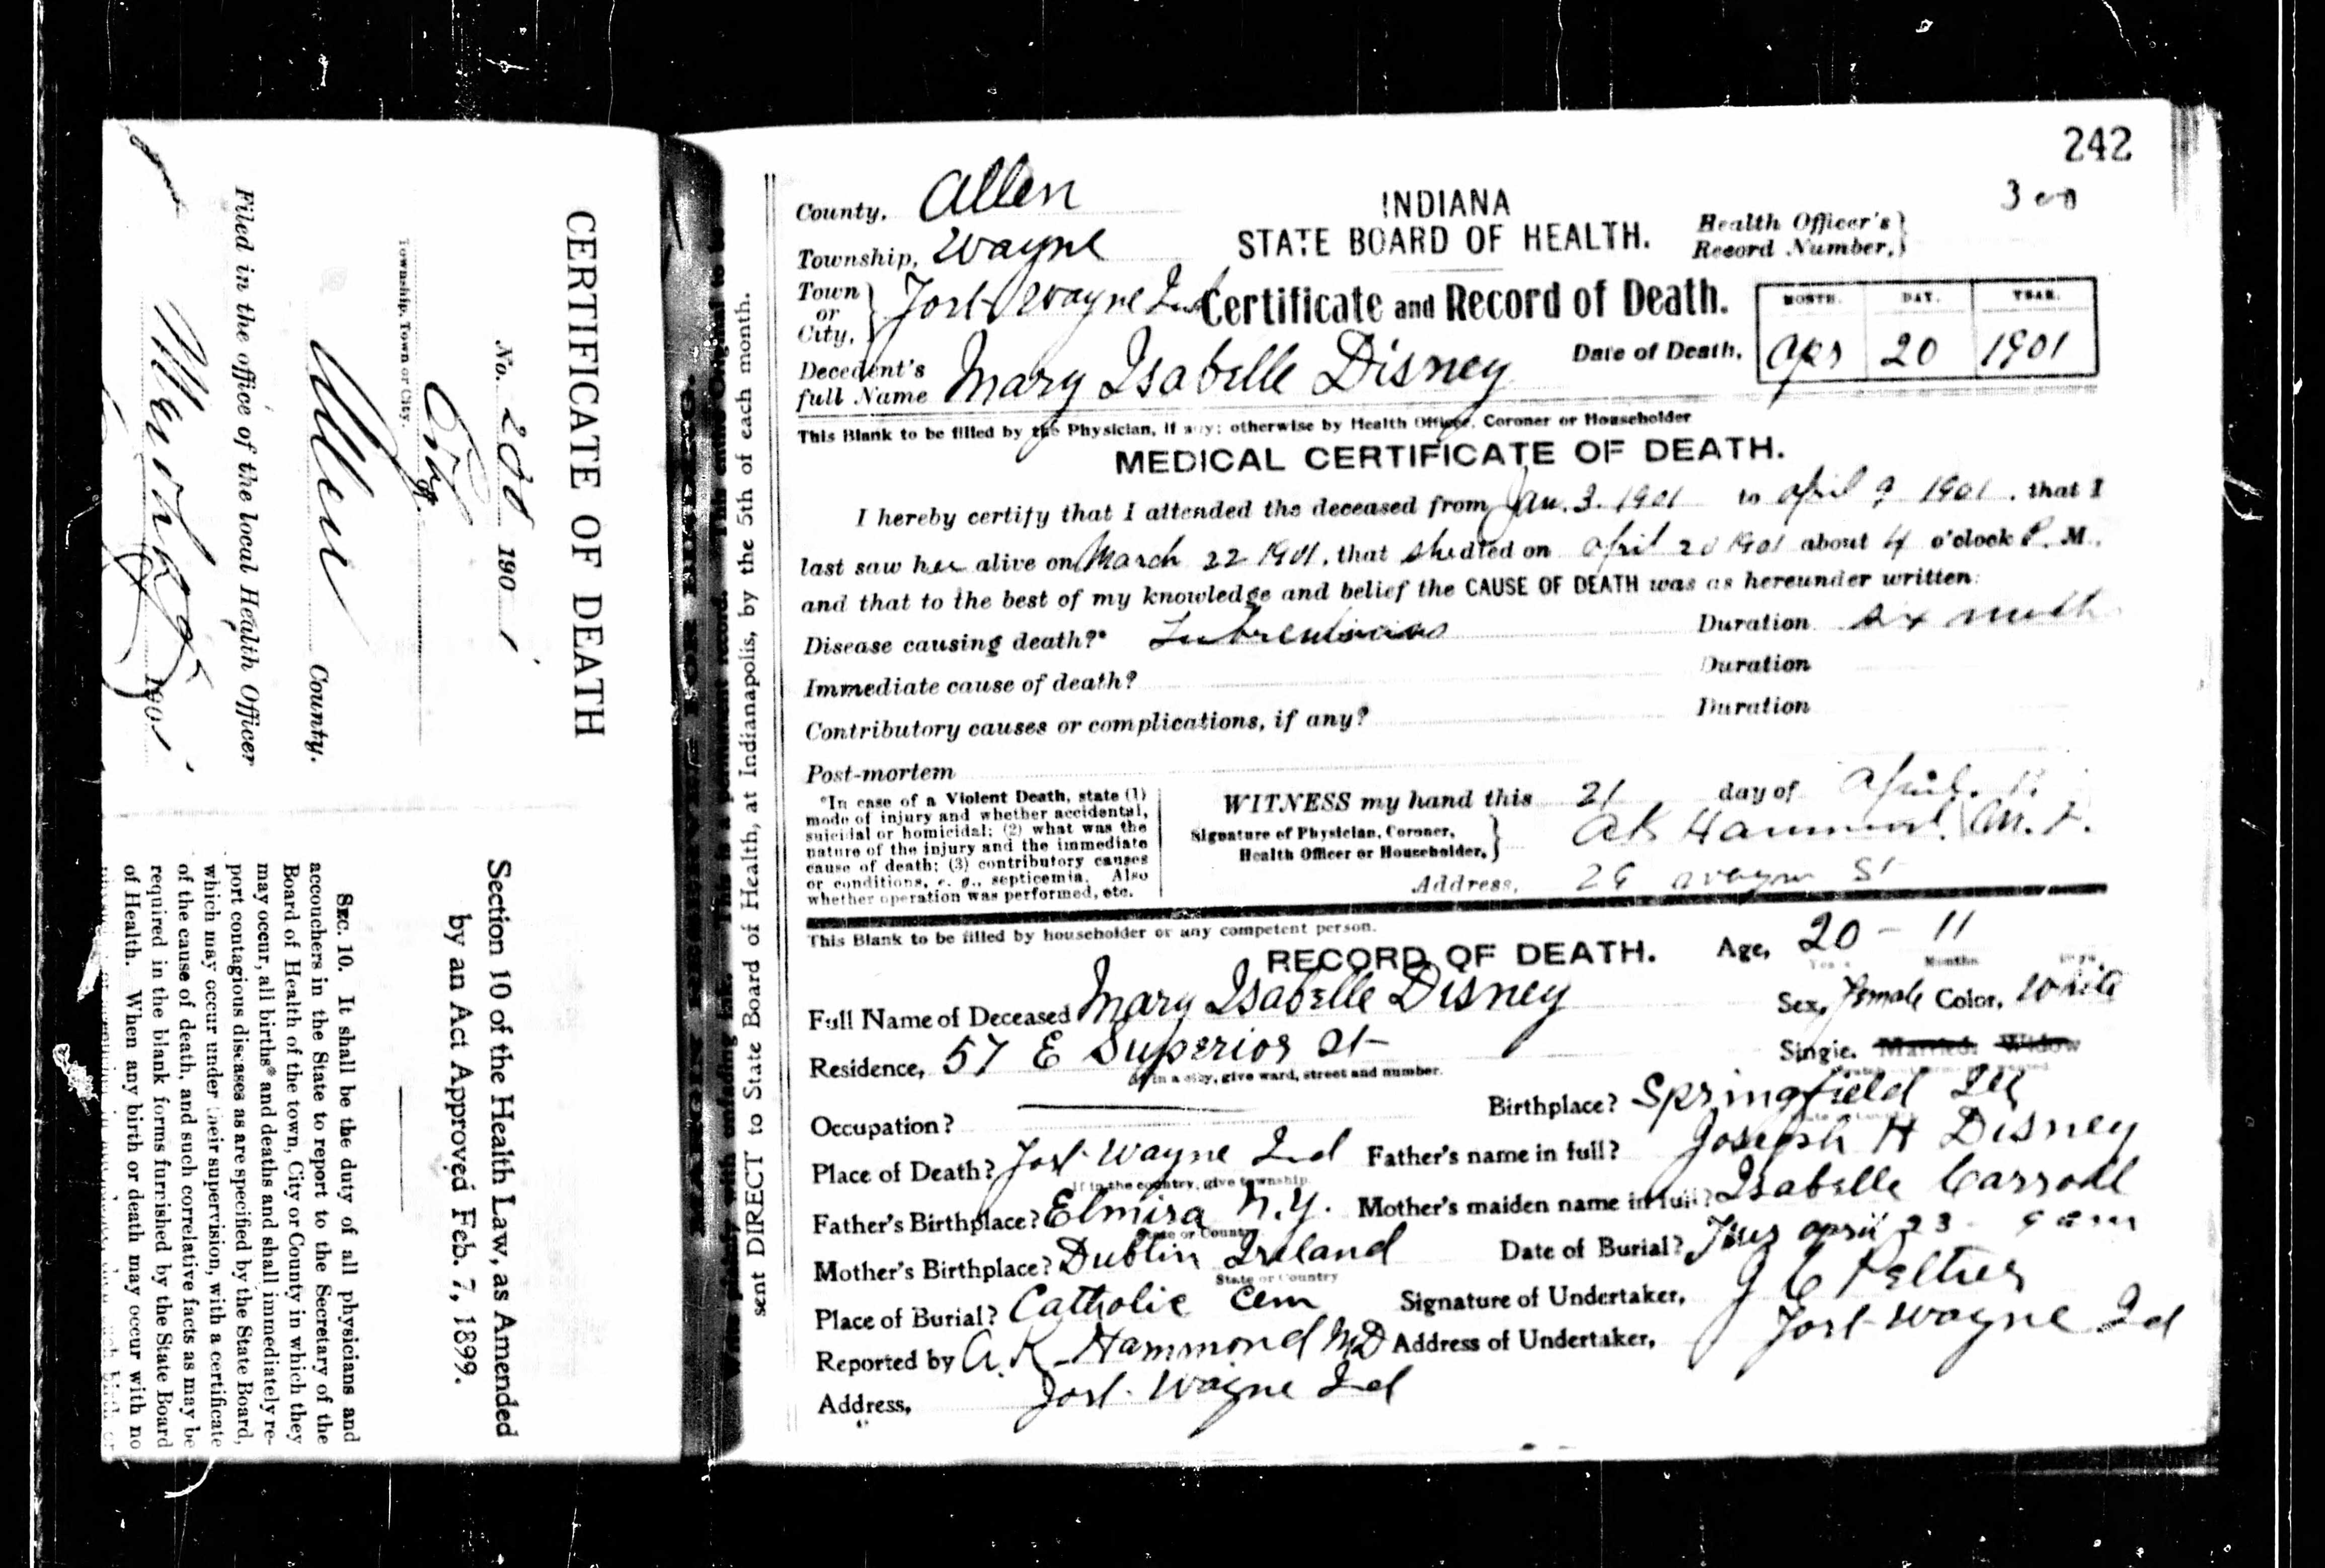 CERTIFICATE OF DEATH
No. 190 1
City
Township, Town or City.
Allen County.
Filed in the office of the local Health Officer
190 1
Section 10 of the Health Law, as Amended
by an Act Approved Feb. 7, 1899.
SEC. 10. It shall be the duty of all physicians and
accouchers in the State to report to the Secretary of the
Board of Health of the town, City or County in which they
may occur, all births* and deaths and shall immediately re-
port contagious diseases as are specified by the State Board,
which may occur under their supervision, with a certificate
of the cause of death, and such correlative facts as may be
required in the blank forms furnished by the State Board
of Health. When any birth or death may occur with no
sent DIRECT to State Board of Health, at Indianapolis, by the 5th of each month.
242
County, Allen
INDIANA
STATE BOARD OF HEALTH.
Health Officer's
Record Number,
300
Township, Wayne
Town or City, Fort Wayne Ind
Certificate and Record of Death.
MONTH. DAY. YEAR.
Date of Death, Apr 20 1901
Decedent's
full Name Mary Isabelle Disney
This Blank to be filled by the Physician, if any; otherwise by Health Officer, Coroner or Householder
MEDICAL CERTIFICATE OF DEATH.
I hereby certify that I attended the deceased from Jan. 3. 1901 to April 9 1901, that I
last saw her alive on March 22 1901, that she died on April 20 1901 about 4 o'clock P. M.,
and that to the best of my knowledge and belief the CAUSE OF DEATH was as hereunder written:
Disease causing death?* Duration six
Immediate cause of death? Duration
Contributory causes or complications, if any? Duration
Post-mortem
*In case of a Violent Death, state (1)
mode of injury and whether accidental,
suicidal or homicidal; (2) what was the
nature of the injury and the immediate
cause of death; (3) contributory causes
or conditions, e. g., septicemia. Also
whether operation was performed, etc.
WITNESS my hand this 21 day of April.
Signature of Physician, Coroner,
Health Officer or Householder, Hammond M.D.
Address, 29 Wayne St
This Blank to be filled by householder or any competent person.
RECORD OF DEATH.
Age, 20 - 11
Years Months Days.
Full Name of Deceased Mary Isabelle Disney
Sex, Female Color, White
Residence, 57 E Superior St
If in a city, give ward, street and number.
Single. Married. Widow
Occupation?
Birthplace? Springfield Ill
Place of Death? Fort Wayne Ind
If in the country, give township.
Father's name in full? Joseph H Disney
Father's Birthplace? Elmira N.Y.
State or Country
Mother's maiden name in full? Isabelle Carroll
Mother's Birthplace? Dublin Ireland
State or Country
Date of Burial? Tues April 23 9 am
Place of Burial? Catholic Cem
Signature of Undertaker, J C Peltier
Reported by A. K. Hammond MD
Address of Undertaker, Fort Wayne Ind
Address, Fort Wayne Ind